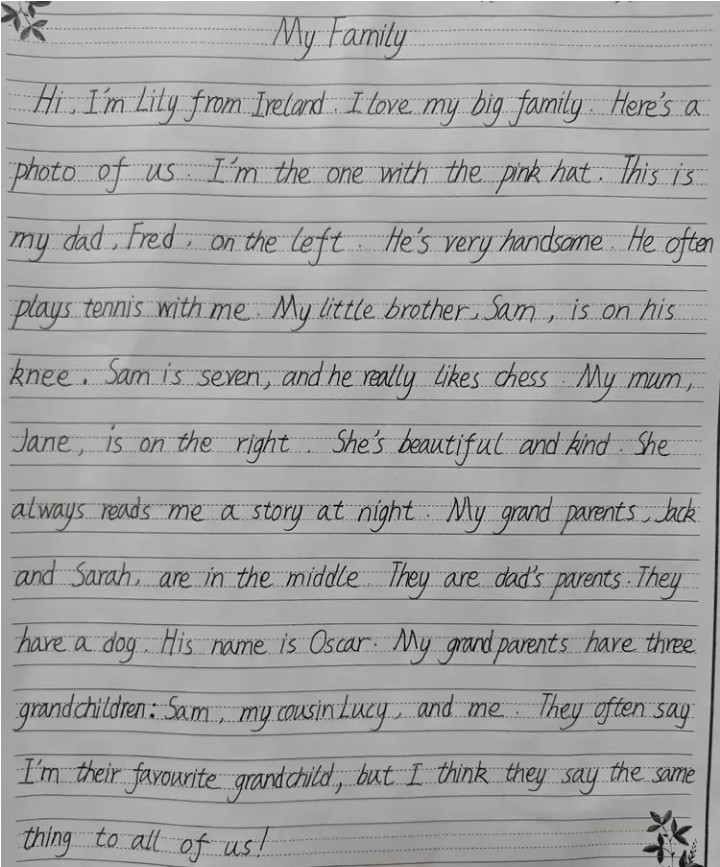 My Family
Hi, I'm Lily from Ireland. I love my big family. Here's a
photo of us. I'm the one with the pink hat. This is
my dad, Fred, on the left. He's very handsome. He often
plays tennis with me. My little brother, Sam, is on his
knee. Sam is seven, and he really likes chess. My mum,
Jane, is on the right. She's beautiful and kind. She
always reads me a story at night. My grand parents, Jack
and Sarah, are in the middle. They are dad's parents. They
have a dog. His name is Oscar. My grandparents have three
grandchildren: Sam, my cousin Lucy, and me. They often say
I'm their favourite grandchild, but I think they say the same
thing to all of us!